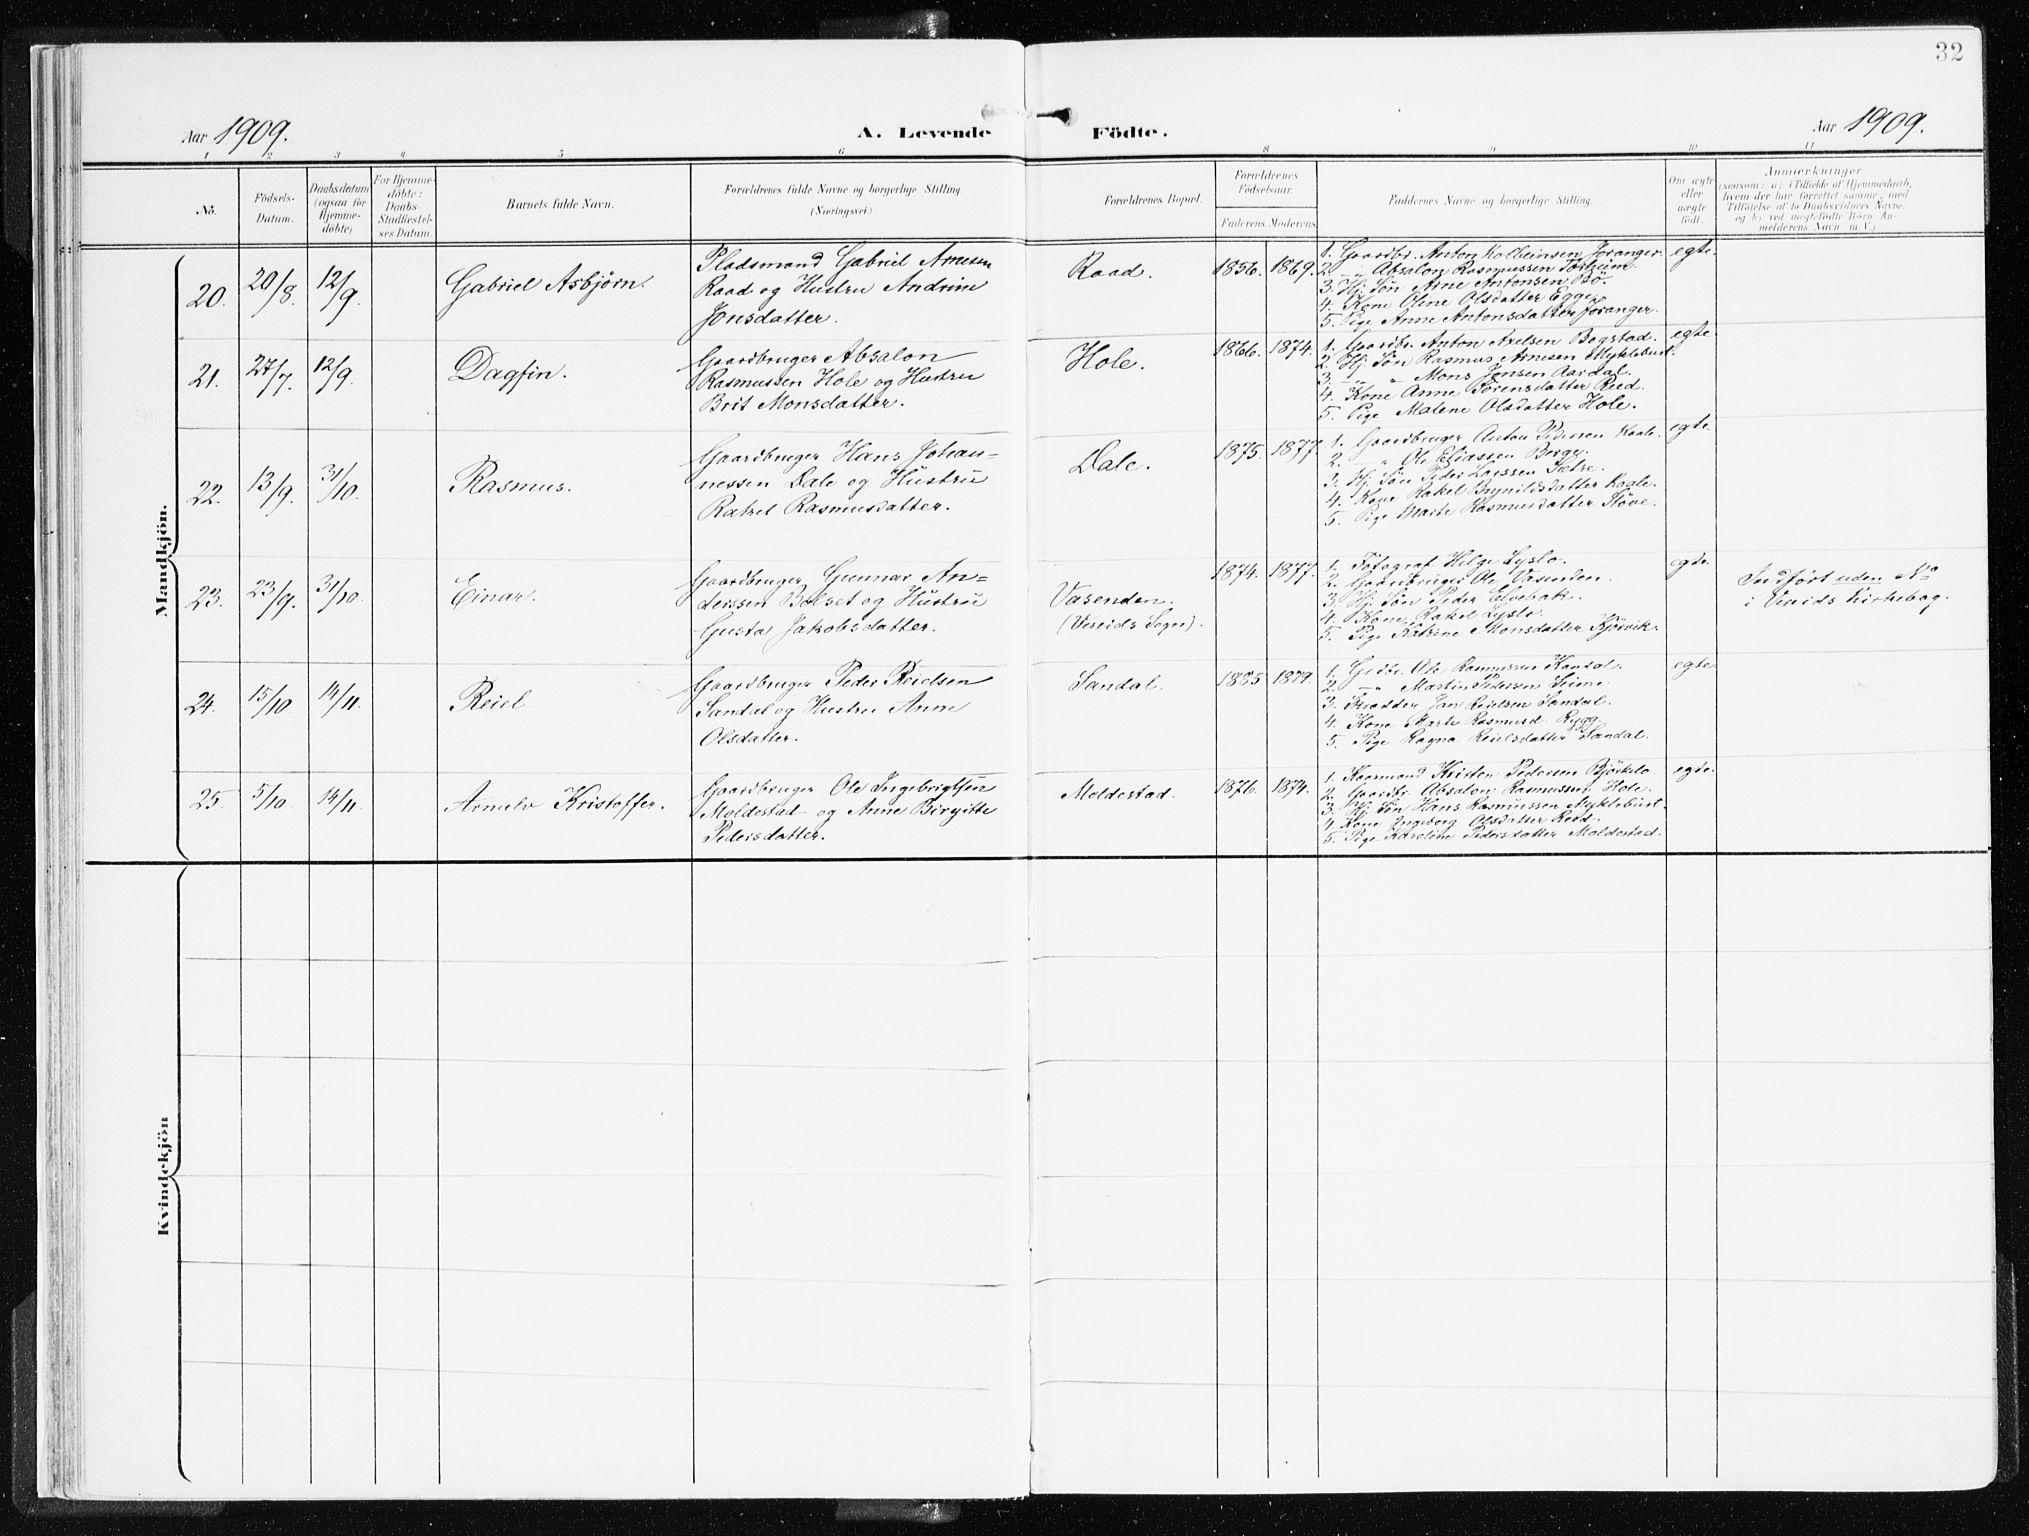 32
Aar 1909.
A. Levende Födte.
Aar 1909.
1 2 3 4 5 6 8 9 10 11
No.
Födsels-Datum.
Daabsdatum (ogsaa for Hjemme-döbte)
For Hjemme-döbte: Daabs-Stadfæstel-ses Datum.
Barnets fulde Navn.
Forældrenes fulde Navne og borgerlige Stilling (Næringsvei)
Forældrenes Bopæl.
Forældrenes Födselsaar.
Faderens. Moderens.
Faddernes Navne og borgerlige Stilling.
Om ægte eller uægte födt.
Anmærkninger
(saasom: a) i Tilfælde af Hjemmedaab,
hvem der har forrettet samme, med
Tilföielse af to Daabsvidners Navne,
og b) ved uægtefödte Börn An-
melderens Navn m. V.)
Mandkjön.
20. 20/8. 12/9. Gabriel Asbjørn.
Pladsmand Gabriel Arnesen
Raad og Hustru Andrine
Jonsdatter.
Raad. 1856. 1869.
1. Gaardbr. Anton Kolbeinsen Joranger.
2. " Absalon Rasmussen Torheim.
3. Hj. Søn Arne Antonsen Bö.
4. Kone Oline Olsdatter Egge.
5. Pige Anne Antonsdatter Joranger.
egte.
21. 27/7. 12/9. Dagfin.
Gaardbruger Absalon
Rasmussen Hole og Hustru
Brit Monsdatter.
Hole. 1866. 1874.
1. Gaardbr. Anton Axelsen Bogstad.
2. Hj. Søn Rasmus Arnesen Myklebust.
3. " " Mons Jonsen Aardal.
4. Kone Anne Sørensdatter Reed.
5. Pige Malene Olsdatter Hole.
egte
22. 13/9. 31/10. Rasmus.
Gaardbruger Hans Johan=
nessen Dale og Hustru
Rakel Rasmusdatter.
Dale. 1875. 1877.
1. Gaardbruger Anton Pedersen Kaale.
2. " Ole Eliassen Berge.
3. Hj. Søn Peder Larssen Sætre.
4. Kone Rakel Brynildsdatter Kaale.
5. Pige Marte Rasmusdatter Støve.
egte.
23. 23/9. 31/10. Einar.
Gaardbruger Gunnar An=
derssen Bolset og Hustru
Gusta Jakobsdatter.
Vasenden.
(Vereids Sogn).
1874. 1877.
1. Fotograf Helge Lyslo.
2. Gaardbruger Ole Vasenden.
3. Hj. Søn Peder Elvebak.
4. Kone Rakel Lyslo.
5. Pige Katrine Monsdatter Kjørvik.
egte.
Indført uden No
i Vereids Kirkebog.
24. 15/10. 14/11. Reiel.
Gaardbruger Peder Reielsen
Sandal og Hustru Anne
Olsdatter.
Sandal. 1885 1879.
1. Grdbr. Ole Rasmussen Kandal.
2. " Martin Pedersen Seime.
3. Skrædder Jon Reielsen Sandal.
4. Kone Marte Rasmusd. Rygg.
5. Pige Ragna Reielsdatter Sandal.
egte
25. 5/10. 14/11. Arnulv Kristoffer.
Gaardbruger Ole Ingebrigtsen
Moldestad og Anne Birgitte
Pedersdatter.
Moldestad. 1876. 1874.
1. Kaarmand Kristen Pedersen Bjørkelo
2. Gaardbr. Absalon Rasmussen Hole.
3. Hj. Søn Hans Rasmussen Myklebust.
4. Kone Ingeborg Olsdatter Reed.
5. Pige Karoline Pedersdatter Moldestad.
egte.
Kvindekjön